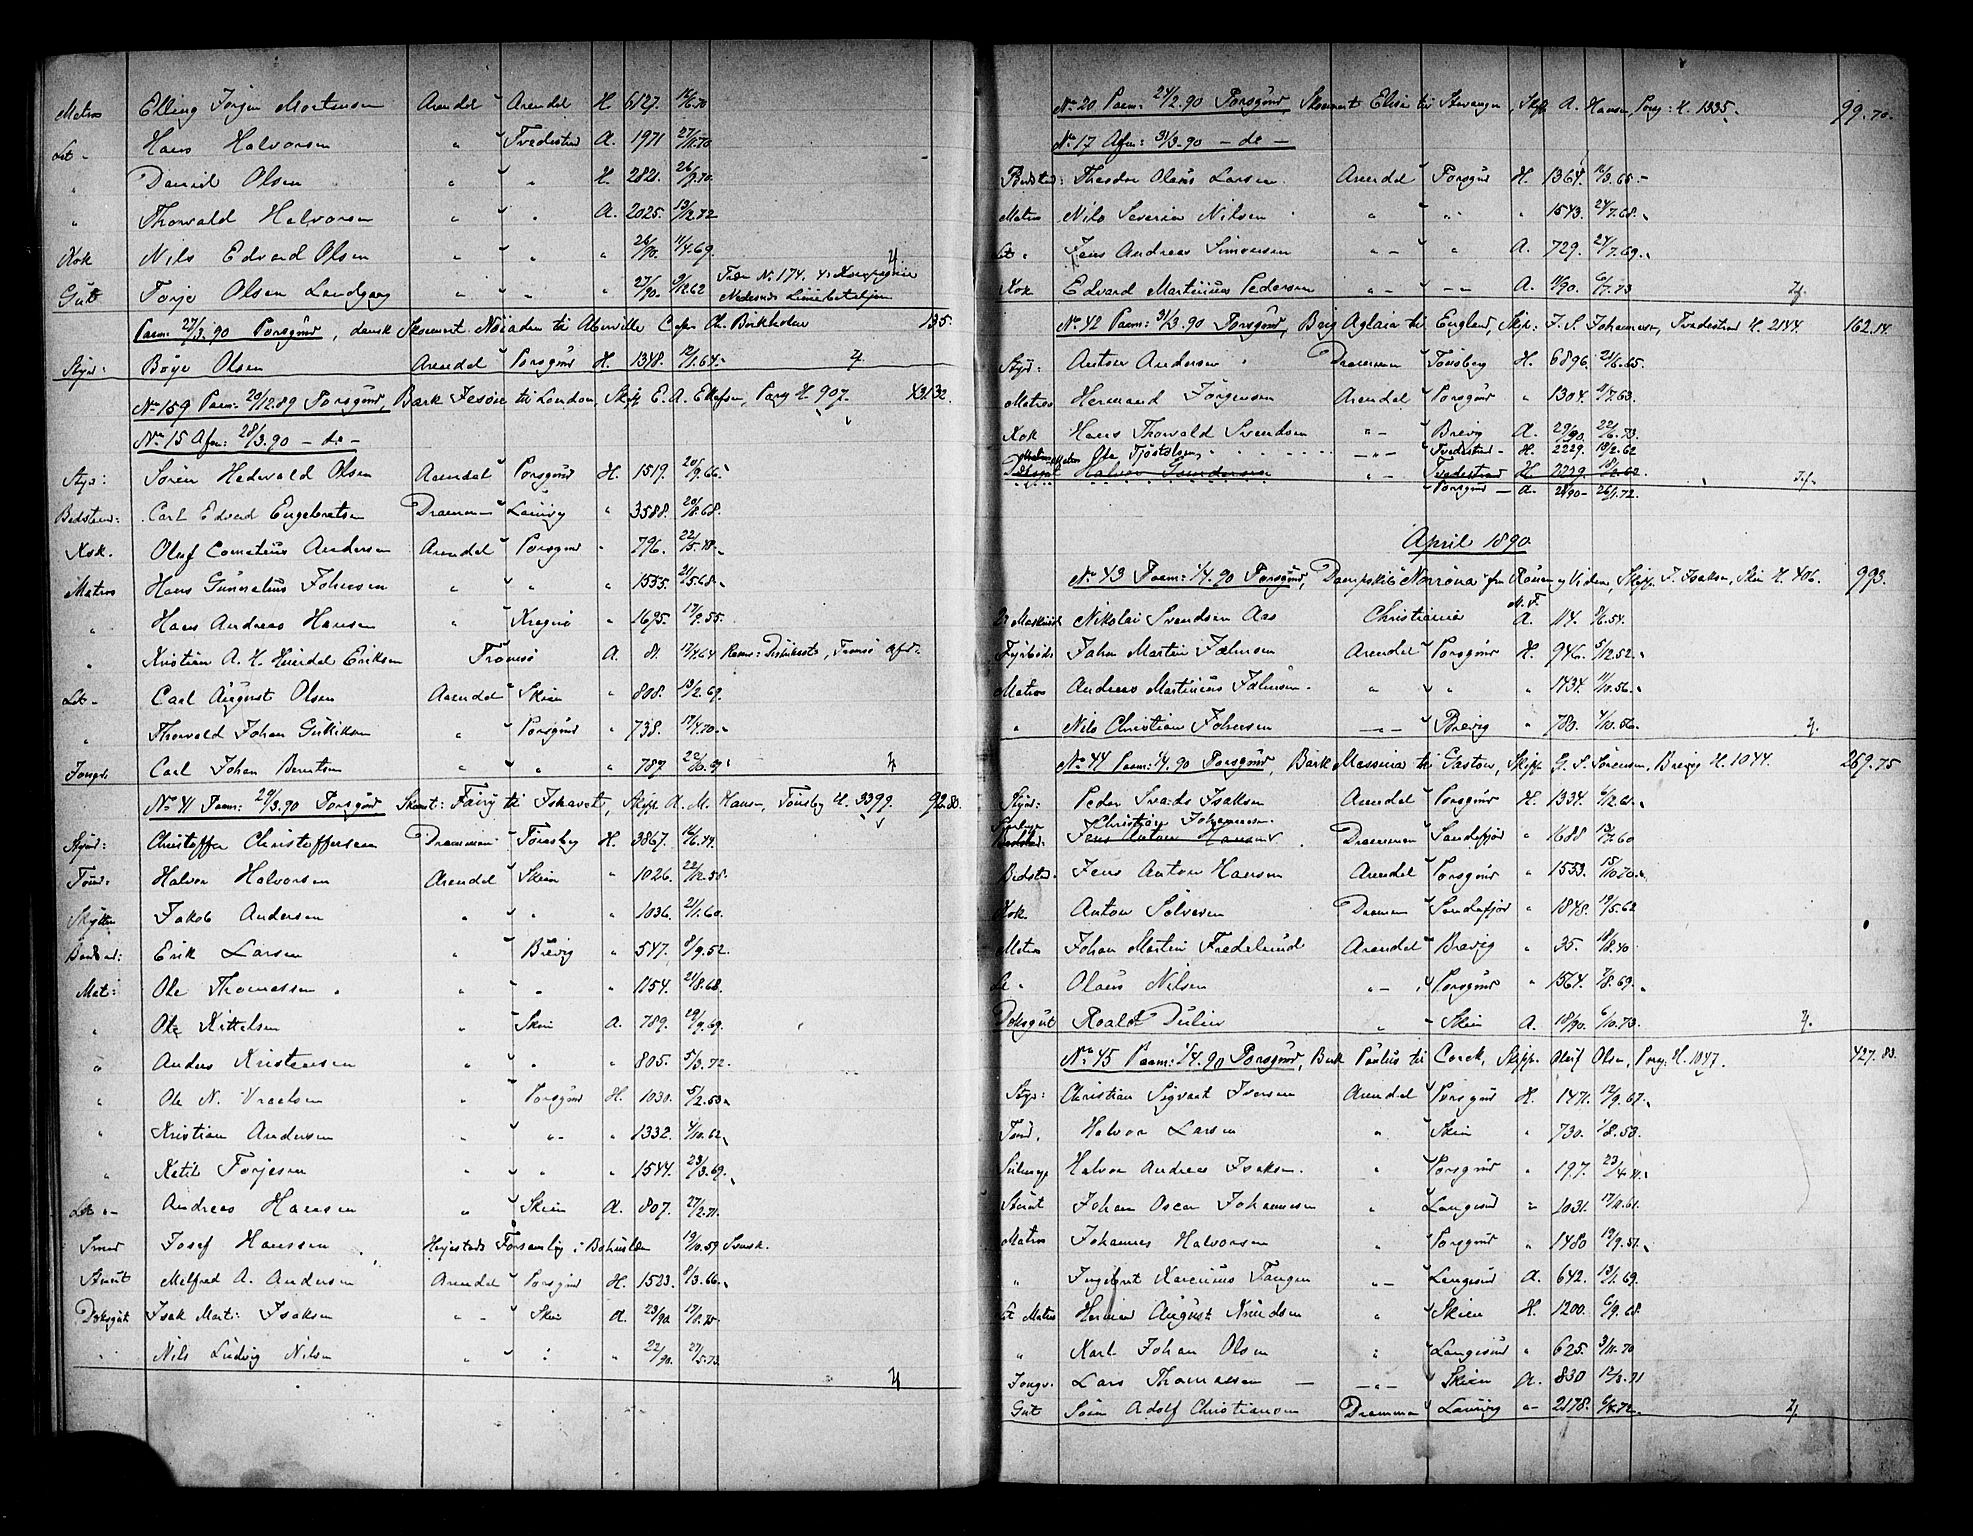 Matros Elling Jörgen Mortensen Arendal Arendal H. 6127. 12/6.70
Let - Hans Halvorsen " Tvedestrd A. 1971 27/11.70
" Daniel Olsen " " H. 2821. 26/9.70.
" Thorvald Halvorsen " " A. 2025. 13/12.72
Kok Nils Edvard Olsen " " " 26/90. 11/4.69.
Gut Torje Olsen Landgang " " " 27/90. 9/12.62 No. 174. 4. Kompagnie
Nedenes Liniebataljon
Paam: 27/3.90 Porsgrund, dansk Skonnert Naiaden til Aberville Capt. Ch. Borkholm 135.
Styrd: Böye Olsen Arendal Porsgrund H. 1348. 12/1.64.
No. 159 Paam: 20/12.89 Porsgrund, Bark Jesöie til London, Skipp E. A. Ellefsen, Porsg H. 907. 431.32.
No. 15 Afm: 28/3.90 - do -
Styr: Sören Hedevald Olsen Arendal Porsgrund H. 1519. 20/9.66.
Bedstmd: Carl Edvard Engebretsen Drammen Laurvig " 3588. 20/8.68.
Kok. Oluf Cornelius Andersen Arendal Porsgrund " 796. 22/5.48.
Matros Hans Gunnelius Johnsen " " " 1555. 21/5.68.
" Hans Andreas Hansen " Kragerö " 1695. 17/9.55.
" Kristian A. H. Heirdal Eriksen Tromsö A. 81. 17/4.64 Tromsö afd.
Let - Carl August Olsen Arendal Skien " 808. 13/2.69.
" Thorvald Johan Gulliksen " Porsgrund " 738. 17/4.70.
Jongm: Carl Johan Berntsen " " " 787.
No. 41 Paam: 29/3.90 Porsgrund Skonnt: Fairy til Ishavet, Skipp A. M. Hansen, Tönsbg H. 3399. 92.80.
Styrd: Christoffer Christoffersen Drammen Tönsberg H. 3867. 16/6.44.
Tömd: Halvor Halvorsen Arendal Skien " 1026. 22/12.55.
Skytter Jakob Andersen " " " 1036. 21/1.60.
Baadsmd: Erik Larsen " Brevig " 547. 8/9.52.
Mat: Ole Thomassen " " " 1154. 21/8.68.
" Ole Kittelsen " Skien A. 789. 29/9.69.
" Anders Kristensen " " " 805. 5/3.72.
" Ole N. Vraalsen " Porsgrund H. 1030. 5/2.53
" Kristian Andersen " " " 1332. 4/10.62.
" Ketil Torjesen " " " 1544. 23/3.69.
Let - Andreas Hansen " Skien A. 807. 27/2.71.
Smed Josef Hanssen Forsamling i Bohuslen 19/10.59 Svensk.
Stuert Melfred A. Andersen Arendal Porsgrund H. 1523. 8/3.66.
Dæksgut Isak Mart: Isaksen " Skien A. 23/90. 17/8.75.
" Nils Ludvig Nilsen " " " 22/90. 27/5.73.
No. 20 Paam: 24/2.90 Porsgrund Skonnert Elise til Stavanger, Skip A. Hansen, Porsg: H. 1335. 99.70.
No. 17 Afm: 31/3.90 - do -
Bedstmd: Theodor Olaus Larsen Arendal Porsgrund H. 1364. 12/3.65.
Matros Nils Severin Nilsen " " " 1543. 24/7.68.
Let " Jens Andreas Simonsen " " A. 729. 24/7.69.
Kok Edvard Martinius Pedersen " " A. 11/90. 6/7.73
No. 42 Paam: 31/3.90 Porsgrund, Brig Aglaia til England, Skip: J. S. Johannessen, Tvedestrand H. 2144. 162.14.
Styrd: Anton Andersen Drammen Tönsberg H. 6896. 21/6.65.
Matros Hermand Jörgensen Arendal Porsgrund " 1304. 11/7.63.
Kok Hans Thorvald Svendsen " Brevig A. 29/90. 22/6.73.
Matros Ole Tjöstolsen " Tvedestrd H. 2229. 18/2.62
Halvor Gundersen " Tvedestrand H. 2229. 18/2.62.
Porsgrund A. 28/90 26/1.72.
April 1890
No. 43 Paam: 1/4.90 Porsgrund, Dampskib Norröna fra Rouen, Skipp. J. Isaksen, Skien H. 406. 993.
2. Maskinist Nikolai Svendsen Aas Christiania M. F. A. 114. 9/6.54.
Fyrböder Johan Martin Johnsen Arendal Porsgrund H. 946. 5/12.52.
Matros Andreas Martinius Johnsen " " " 1434. 11/10.56.
" Nils Christian Johnsen " Brevig " 780. 4/10.56.
No. 44 Paam: 1/4.90 Porsgrund, Bark Massina til Gaston, Skipp G. S. Sörensen, Brevig H. 1044. 269.75
Styrd: Peder Isaksen Arendal Porsgrund H. 1334. 6/12.61.
Christian Johannessen
Bedstmd: Jens Anton Hansen Drammen Sandefjor " 1688 13/7.60
Bedstm. Jens Anton Hansen Arendal Porsgrund " 1553. 15/10.70.
Kok. Anton Sölversen Drammen Sandefjor " 1848. 19/5.62
Matros Johan Martin Fredelund Arendal Brevig " 35. 18/8.40.
Let " Olaus Nilsen " Porsgrund " 1564. 7/8.69.
Dæksgut Roald Dulin " Skien A. 18/90. 6/10.73.
No. 45 Paam: 1/4.90 Porsgrund, Bark Paulus til Corck, Skipp. Oluf Olsen, Porsg: H. 1047. 427.83.
Styr: Christian Sigvart Iversen Arendal Porsgrund H. 1471. 12/9.67.
Tömd. Halvor Larsen " Skien " 730. 1/8.53.
Seilmager Halvor Andreas Isaksen. " Porsgrund " 197. 23/4.41.
Stuert Johan Oscar Johannessen " Langesund " 1031. 17/11.61.
Matros Johannes Halvorsen " Porsgrund " 1480 19/9.51.
" Ingebret Marcinius Tangen " Langesund A. 642. 13/1.69.
Let Matros Herman August Knudsen " Skien H. 1200. 6/9.68.
" Karl Johan Olsen " Langesund " 625. 3/11.70
Jongm. Lars Thomassen " Skien A. 830 12/3.71
Gut Sören Adolf Christiansen Drammen Laurvig " 2178. 6/4.72.